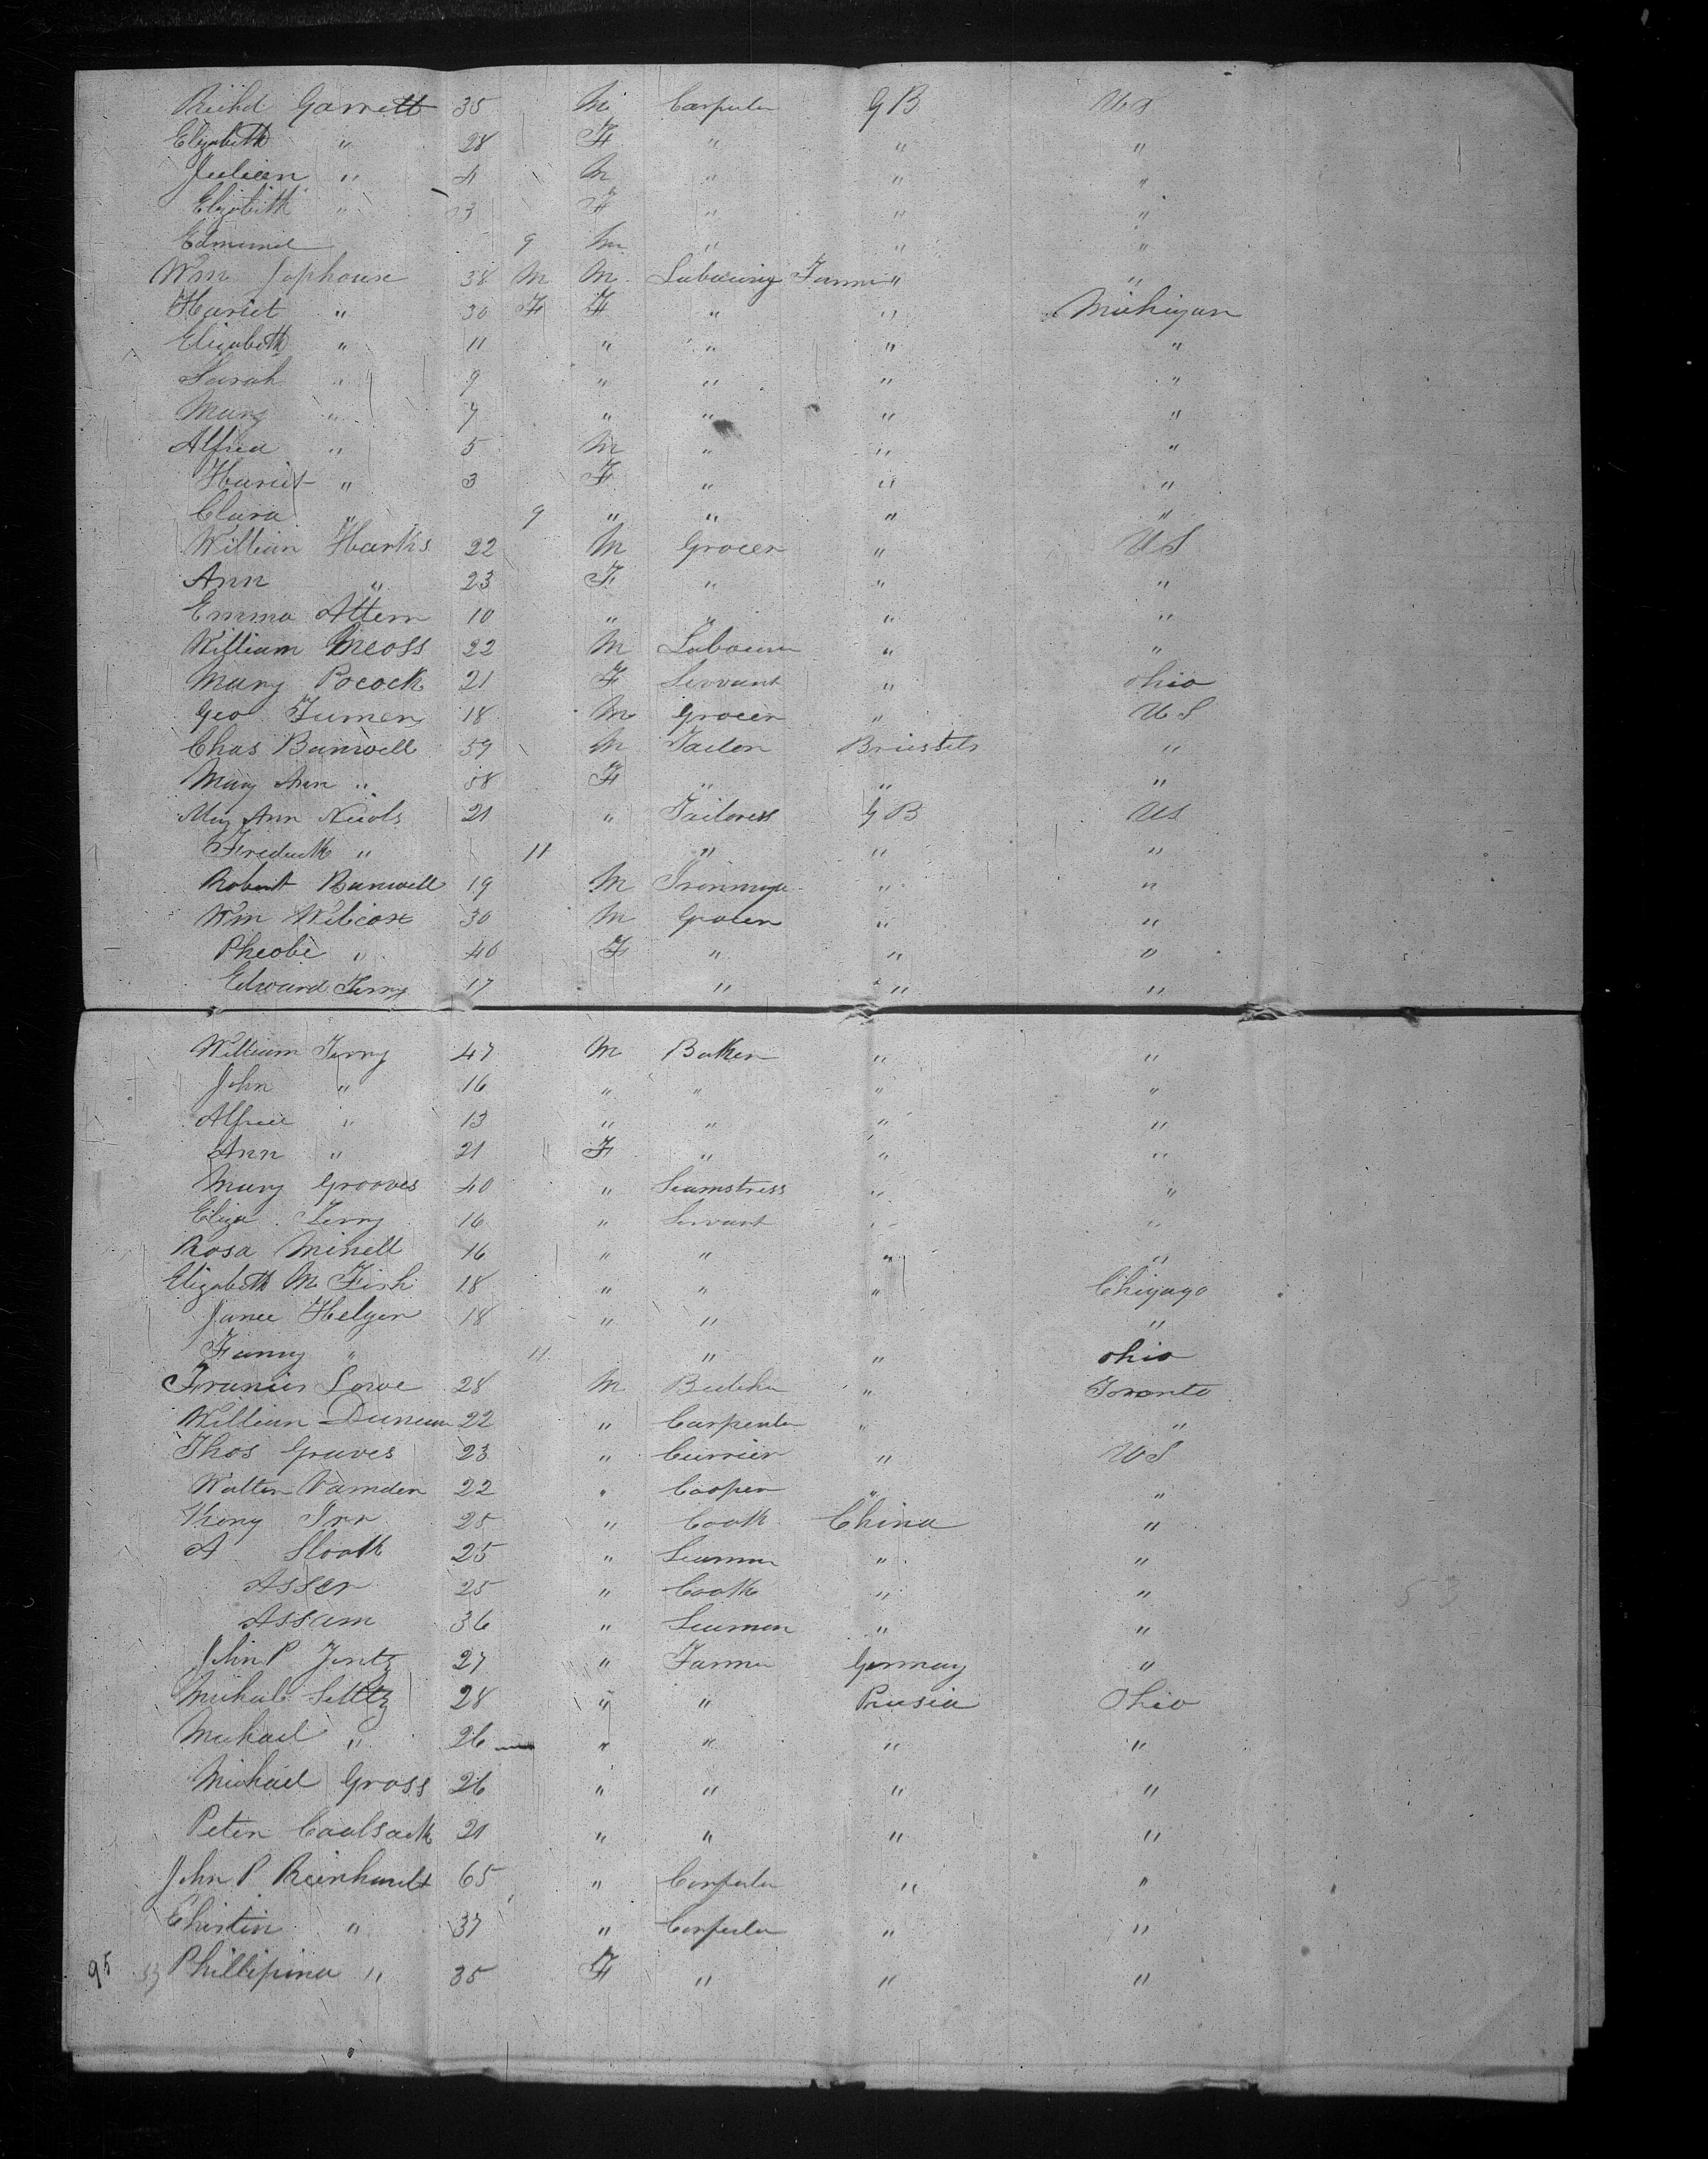 Richd Garrett 35 M Carpenter G B U S
Elizabeth " 28 F " " "
Julian " 4 M " " "
Elizabeth " 3 F " " "
Edmund 9 M " " "
Wm Jophouse 38 M M Labouring Farmer " "
Hariet " 30 F F " " Michigan
Elizabeth " 11 " " " "
Sarah " 9 " " " "
Mary " 7 " " " "
Alfred " 5 M " " "
Hariet " 3 F " " "
Clara " 9 " " " "
William Harths 22 M Grocer " U S
Ann " 23 F " " "
Emma Attern 10 " " " "
William 22 M Labourer " "
Mary Pocock 21 F Servant " Ohio
Geo. Turner 18 M Grocer " U S
Chas Banwell 59 M Tailor Brussels "
Mary Ann " 58 F " " "
Mry Ann Nicols 21 " Tailoress G B U S
Frederick " 11 " " "
Robert Banwell 19 M Ironmger " "
Wm Wilcox 30 M Grocer " "
Pheobe " 40 F " " "
Edward Terry 17 " " "
William Terry 47 M Baker " "
John " 16 " " " "
Alfred " 13 " " " "
Ann " 21 " F " " "
Mary Grooves 40 " Seamstress " "
Eliza Terry 16 " Servant " "
Rosa Minell 16 " " " "
Elizabeth M Fish 18 " " " Chigago
Janee Helyer 18 " " "
Fanny " 11 " " Ohio
Francis Lowe 28 M Butcher " Toronto
William Duncan 22 " Carpenter " "
Thos Graves 23 " Currier " U S
Walter Vamden 22 " Cooper " "
25 " Cook China "
A Slook 25 " Seaman " "
Asser 25 " Cook " "
Assam 36 " Seaman " "
John P Jentz 27 " Farmer Germay "
Michael Seltz 28 " " Prusia Ohio
Michael " 26 " " " "
Michael Gross 26 " " " "
Peter Coalsack 21 " " " "
John P Reinhardt 65 " Carpenter " "
Christin " 37 " Carpenter " "
95 53 Phillipina " 35 F " " "
53